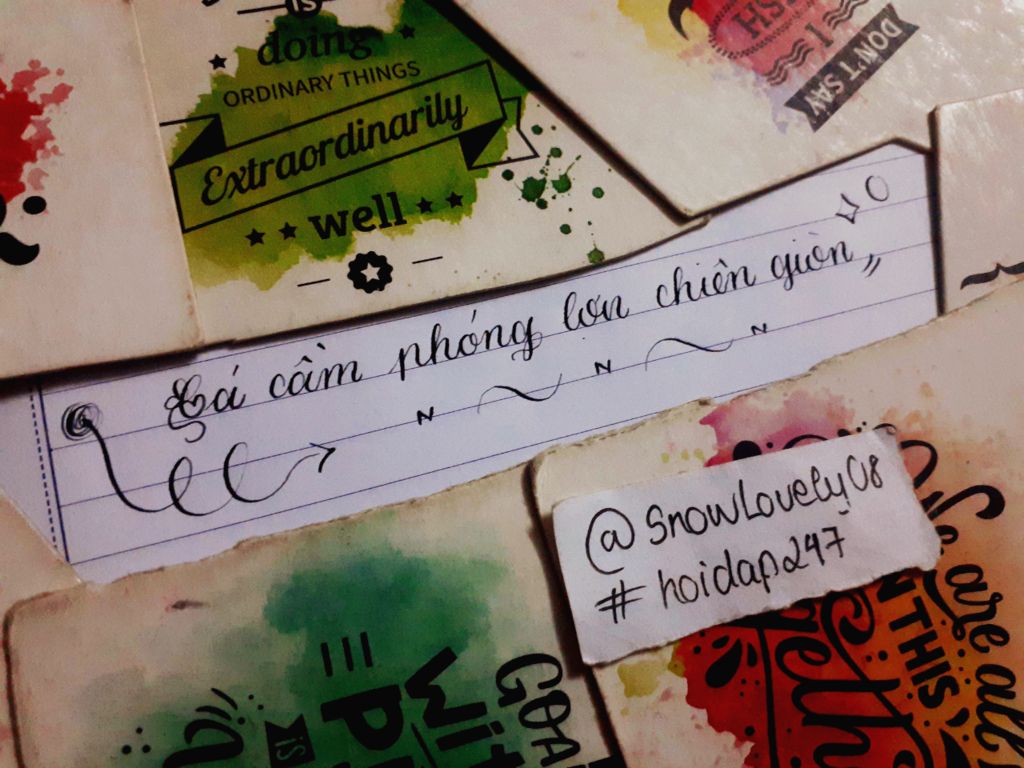 IS
doing
ORDINARY THINGS
Extraordinarily
well
I
DON'T SAY
Cá cầm phóng lơn chiên giòn,,
@SnowLovely08
#hoidap247
is
are all
THIS